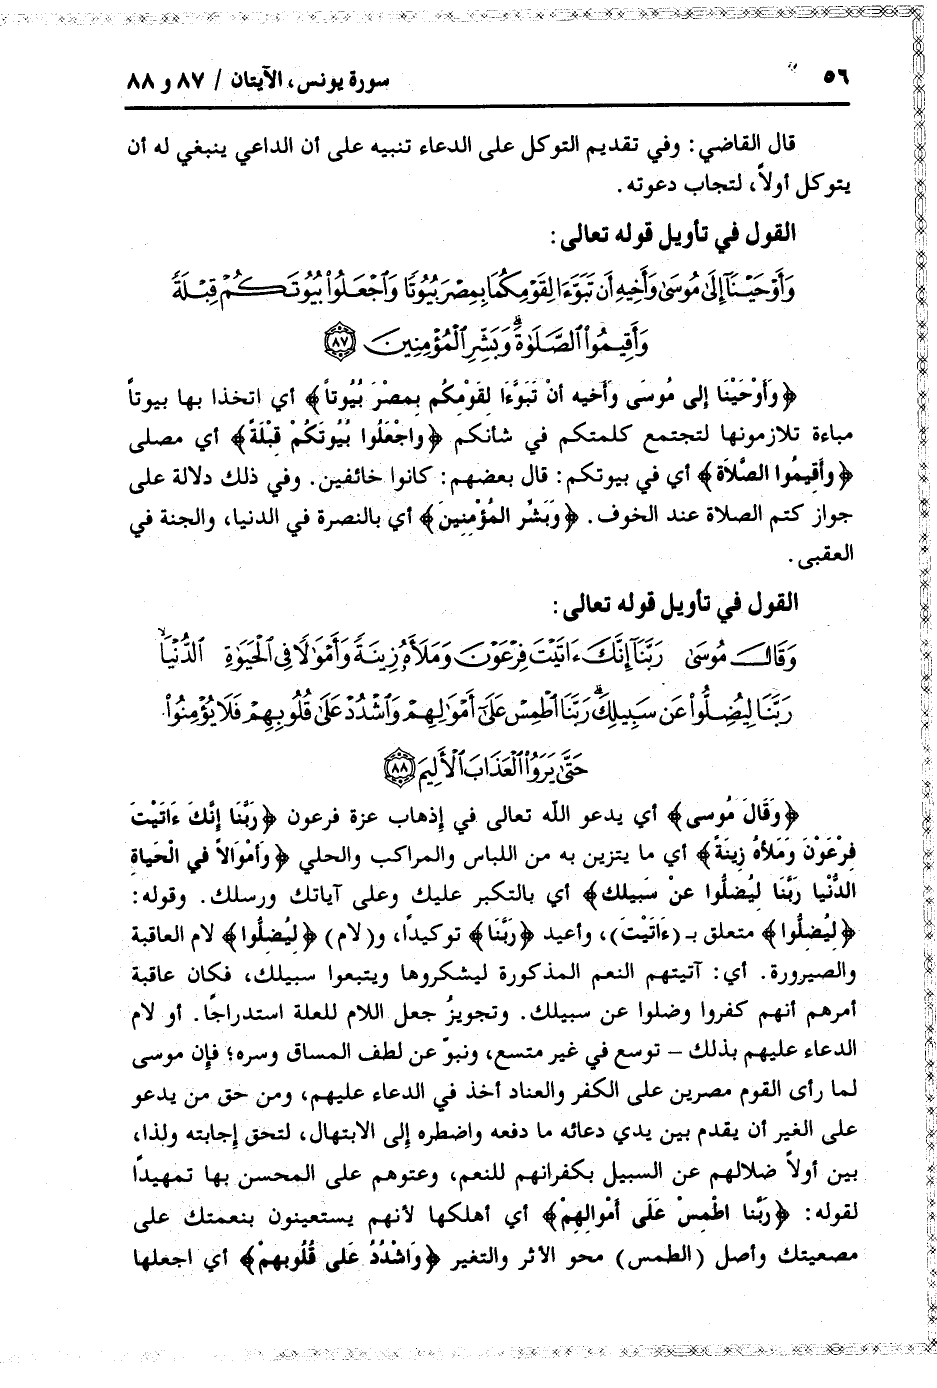 ٥٦ سورة يونس، الآيتان / ٨٧ و ٨٨
قال القاضي: وفي تقديم التوكل على الدعاء تنبيه على أن الداعي ينبغي له أن
يتوكل أولاً، لتجاب دعوته.
القول في تأويل قوله تعالى:
وَأَوْحَيْنَآ إِلَىٰ مُوسَىٰ وَأَخِيهِ أَن تَبَوَّءَا لِقَوْمِكُمَا بِمِصْرَ بُيُوتًا وَٱجْعَلُوا۟ بُيُوتَكُمْ قِبْلَةً
وَأَقِيمُوا۟ ٱلصَّلَوٰةَ ۗ وَبَشِّرِ ٱلْمُؤْمِنِينَ ﴿٨٧﴾
﴿وَأَوْحَيْنَا إلى مُوسَى وَأخيه أنْ تَبَوَّءَا لقَوْمِكُم بِمصْرَ بُيُوتاً﴾ أي اتخذا بها بيوتاً
مباءة تلازمونها لتجتمع كلمتكم في شأنكم ﴿واجْعَلُوا بُيُوتَكُمْ قبْلَةً﴾ أي مصلى
﴿وأَقِيمُوا الصَّلاَة﴾ أي في بيوتكم: قال بعضهم: كانوا خائفين. وفي ذلك دلالة على
جواز كتم الصلاة عند الخوف. ﴿وَبَشِّر المُؤْمِنينَ﴾ أي بالنصرة في الدنيا، والجنة في
العقبى.
القول في تأويل قوله تعالى:
وَقَالَ مُوسَىٰ رَبَّنَآ إِنَّكَ ءَاتَيْتَ فِرْعَوْنَ وَمَلَأَهُۥ زِينَةً وَأَمْوَٰلًا فِى ٱلْحَيَوٰةِ ٱلدُّنْيَا
رَبَّنَا لِيُضِلُّوا۟ عَن سَبِيلِكَ ۖ رَبَّنَا ٱطْمِسْ عَلَىٰٓ أَمْوَٰلِهِمْ وَٱشْدُدْ عَلَىٰ قُلُوبِهِمْ فَلَا يُؤْمِنُوا۟
حَتَّىٰ يَرَوُا۟ ٱلْعَذَابَ ٱلْأَلِيمَ ﴿٨٨﴾
﴿وَقَالَ مُوسى﴾ أي يدعو الله تعالى في إذهاب عزة فرعون ﴿رَبَّنَا إنَّكَ ءَاتَيْتَ
فِرْعَوْنَ وَمَلأهُ زِينَةً﴾ أي ما يتزين به من اللباس والمراكب والحلي ﴿وَأمْوَالاً في الْحَيَاةِ
الدُّنْيا رَبَّنَا ليُضلُّوا عنْ سَبيلك﴾ أي بالتكبر عليك وعلى آياتك ورسلك. وقوله:
﴿ليُضلُّوا﴾ متعلق بـ (ءَاتَيْتَ)، وأعيد ﴿رَبَّنَا﴾ توكيداً، و(لام) ﴿ليُضلُّوا﴾ لام العاقبة
والصيرورة. أي: آتيتهم النعم المذكورة ليشكروها ويتبعوا سبيلك، فكان عاقبة
أمرهم أنهم كفروا وضلوا عن سبيلك. وتجويزُ جعل اللام للعلة استدراجًا. أو لام
الدعاء عليهم بذلك – توسع في غير متسع، ونبوّ عن لطف المساق وسره؛ فإن موسى
لما رأى القوم مصرين على الكفر والعناد أخذ في الدعاء عليهم، ومن حق من يدعو
على الغير أن يقدم بين يدي دعائه ما دفعه واضطره إلى الابتهال، لتحق إجابته ولذا،
بين أولاً ضلالهم عن السبيل بكفرانهم للنعم، وعتوهم على المحسن بها تمهيداً
لقوله: ﴿رَبَّنا اطْمِسْ عَلَى أمْوالِهِمْ﴾ أي أهلكها لأنهم يستعينون بنعمتك على
مصعيتك وأصل (الطمس) محو الأثر والتغير ﴿وَاشْدُدُ عَلى قُلُوبهمْ﴾ أي اجعلها